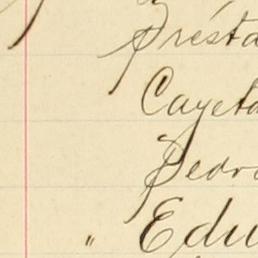 Presta
Cayeta
Pedro
" Edu